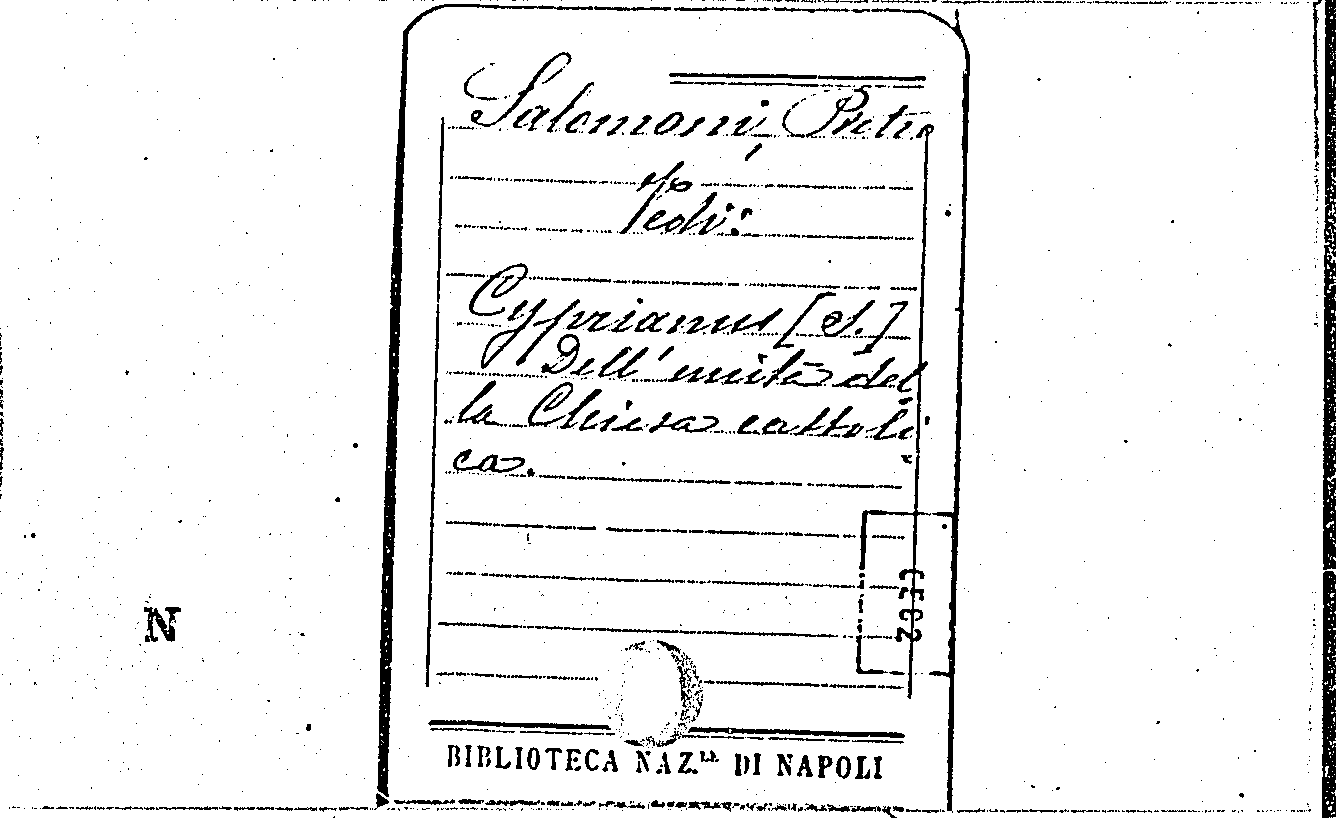 Salomoni, Pietro
Vedi:
Cyprianus [S.]
Dell'unità del
la Chiesa cattoli
ca.
N
BIBLIOTECA NAZ.LE DI NAPOLI